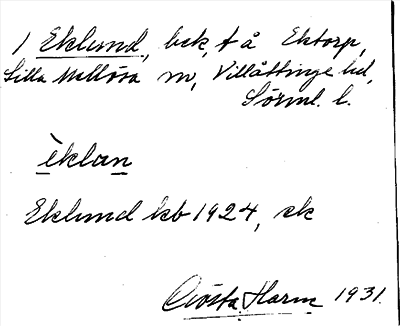 1 Eklund, bek, t å Ektorp,
Lilla Mellösa sn, Villåttinge hd,
Sörml. l.
èklan
Eklund kb 1924, ek
Gösta Harm 1931.